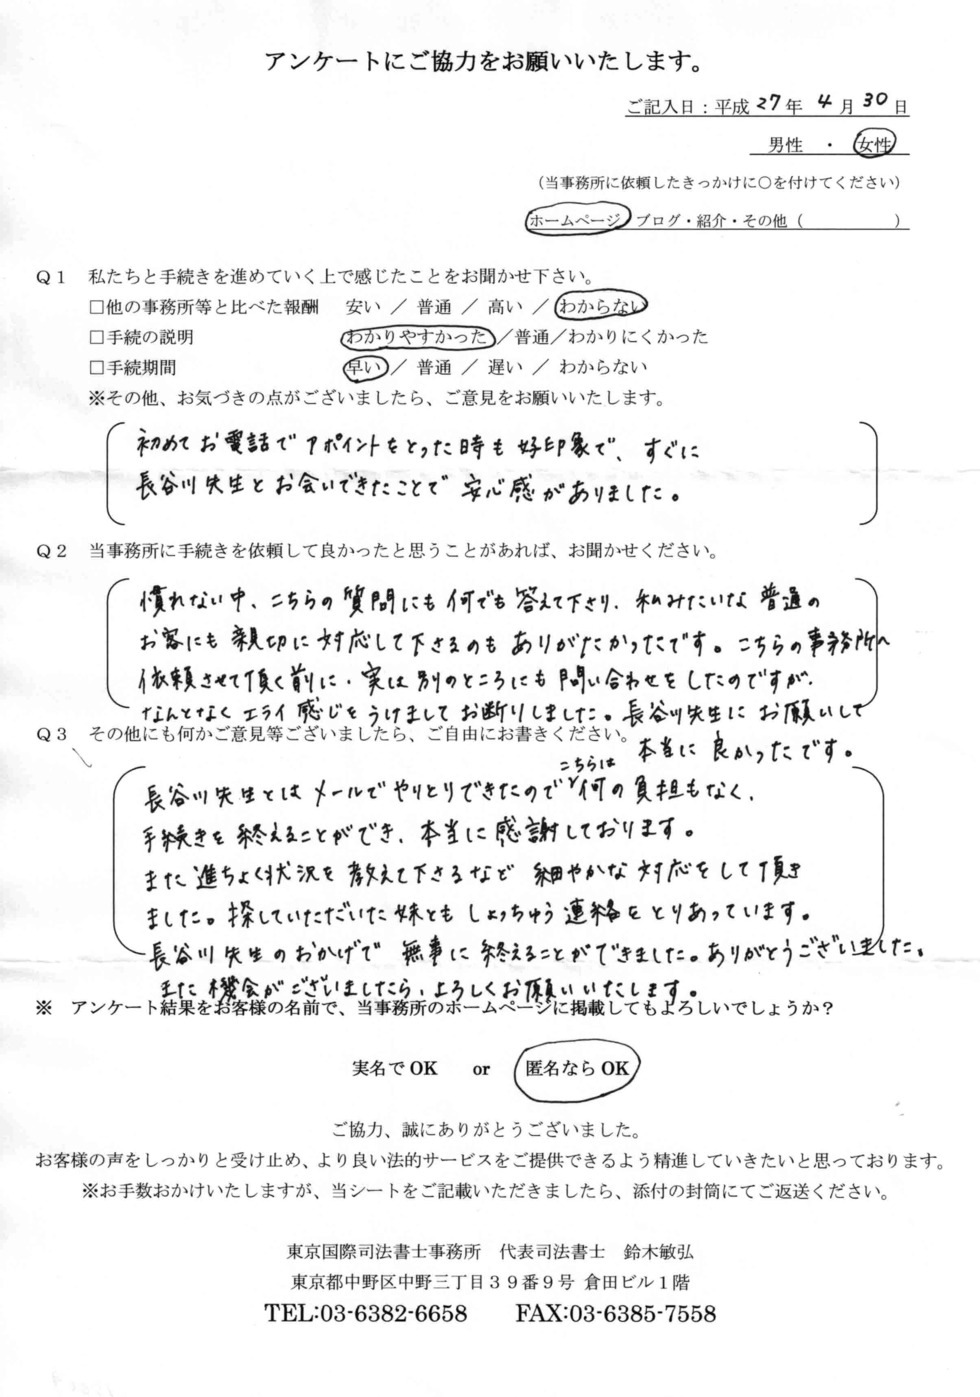 アンケートにご協力をお願いいたします。
ご記入日：平成27年 4月30日
男性 ・ 女性
（当事務所に依頼したきっかけに○を付けてください）
ホームページ・ブログ・紹介・その他（　　　　　）
Ｑ１　私たちと手続きを進めていく上で感じたことをお聞かせ下さい。
□他の事務所等と比べた報酬　安い ／ 普通 ／ 高い ／ わからない
□手続の説明　わかりやすかった ／普通／わかりにくかった
□手続期間　早い ／ 普通 ／ 遅い ／ わからない
※その他、お気づきの点がございましたら、ご意見をお願いいたします。
初めてお電話でアポイントをとった時も好印象で、すぐに
長谷川先生とお会いできたことで安心感がありました。
Ｑ２　当事務所に手続きを依頼して良かったと思うことがあれば、お聞かせください。
慣れない中、こちらの質問にも何でも答えて下さり、私みたいな普通の
お客にも親切に対応して下さるのもありがたかったです。こちらの事務所へ
依頼させて頂く前に、実は別のところにも問い合わせをしたのですが、
なんとなくエライ感じをうけましてお断りしました。長谷川先生にお願いして
本当に良かったです。
Ｑ３　その他にも何かご意見等ございましたら、ご自由にお書きください。
長谷川先生とはメールでやりとりできたのでこちらは何の負担もなく、
手続きを終えることができ、本当に感謝しております。
また進ちょく状況を教えて下さるなど細やかな対応をして頂き
ました。探していただいた妹ともしょっちゅう連絡をとりあっています。
長谷川先生のおかげで無事に終えることができました。ありがとうございました。
また機会がございましたら、よろしくお願いいたします。
※　アンケート結果をお客様の名前で、当事務所のホームページに掲載してもよろしいでしょうか？
実名でOK　or　匿名ならOK
ご協力、誠にありがとうございました。
お客様の声をしっかりと受け止め、より良い法的サービスをご提供できるよう精進していきたいと思っております。
※お手数おかけいたしますが、当シートをご記載いただきましたら、添付の封筒にてご返送ください。
東京国際司法書士事務所　代表司法書士　鈴木敏弘
東京都中野区中野三丁目３９番９号 倉田ビル１階
TEL:03-6382-6658　FAX:03-6385-7558